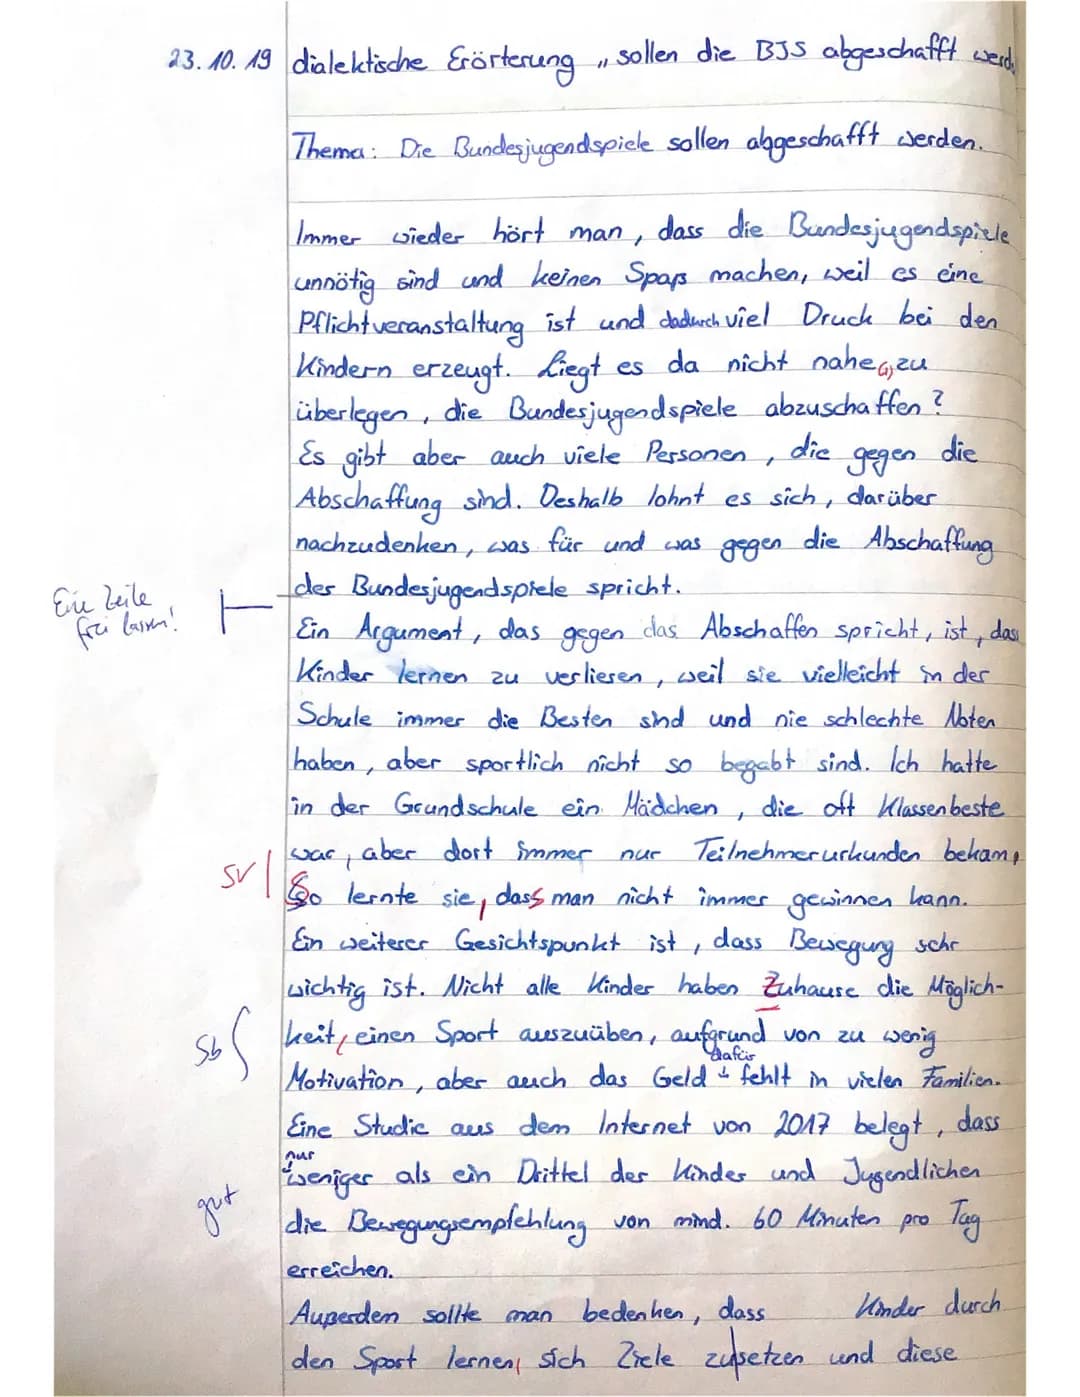 23.10.19 dialektische Erörterung „sollen die BJS abgeschafft werd
Thema: Die Bundesjugendspiele sollen abgeschafft werden.
Immer wieder hört man, dass die Bundesjugendspiele
unnötig sind und keinen Spaß machen, weil es eine
Pflichtveranstaltung ist und dadurch viel Druck bei den
Kindern erzeugt. Liegt es da nicht nahe(,) zu
überlegen, die Bundesjugendspiele abzuschaffen?
Es gibt aber auch viele Personen, die gegen die
Abschaffung sind. Deshalb lohnt es sich, darüber
nachzudenken, was für und was gegen die Abschaffung
der Bundesjugendspiele spricht.
Eine Zeile
frei lassen!
Ein Argument, das gegen das Abschaffen spricht, ist, dass
Kinder lernen zu verlieren, weil sie vielleicht in der
Schule immer die Besten sind und nie schlechte Noten
haben, aber sportlich nicht so begabt sind. Ich hatte
in der Grundschule ein Mädchen, die oft Klassenbeste
war, aber dort immer nur Teilnehmerurkunden bekam,
SV So lernte sie, dass man nicht immer gewinnen kann.
Ein weiterer Gesichtspunkt ist, dass Bewegung sehr
wichtig ist. Nicht alle Kinder haben Zuhause die Möglich-
Sb keit, einen Sport auszuüben, aufgrund von zu wenig
Motivation, aber auch das Geld dafür fehlt in vielen Familien.
Eine Studie aus dem Internet von 2017 belegt, dass
nur weniger als ein Drittel der Kinder und Jugendlichen
gut die Bewegungsempfehlung von mind. 60 Minuten pro Tag
erreichen.
Außerdem sollte man bedenken, dass Kinder durch
den Sport lernen, sich Ziele zu setzen und diese